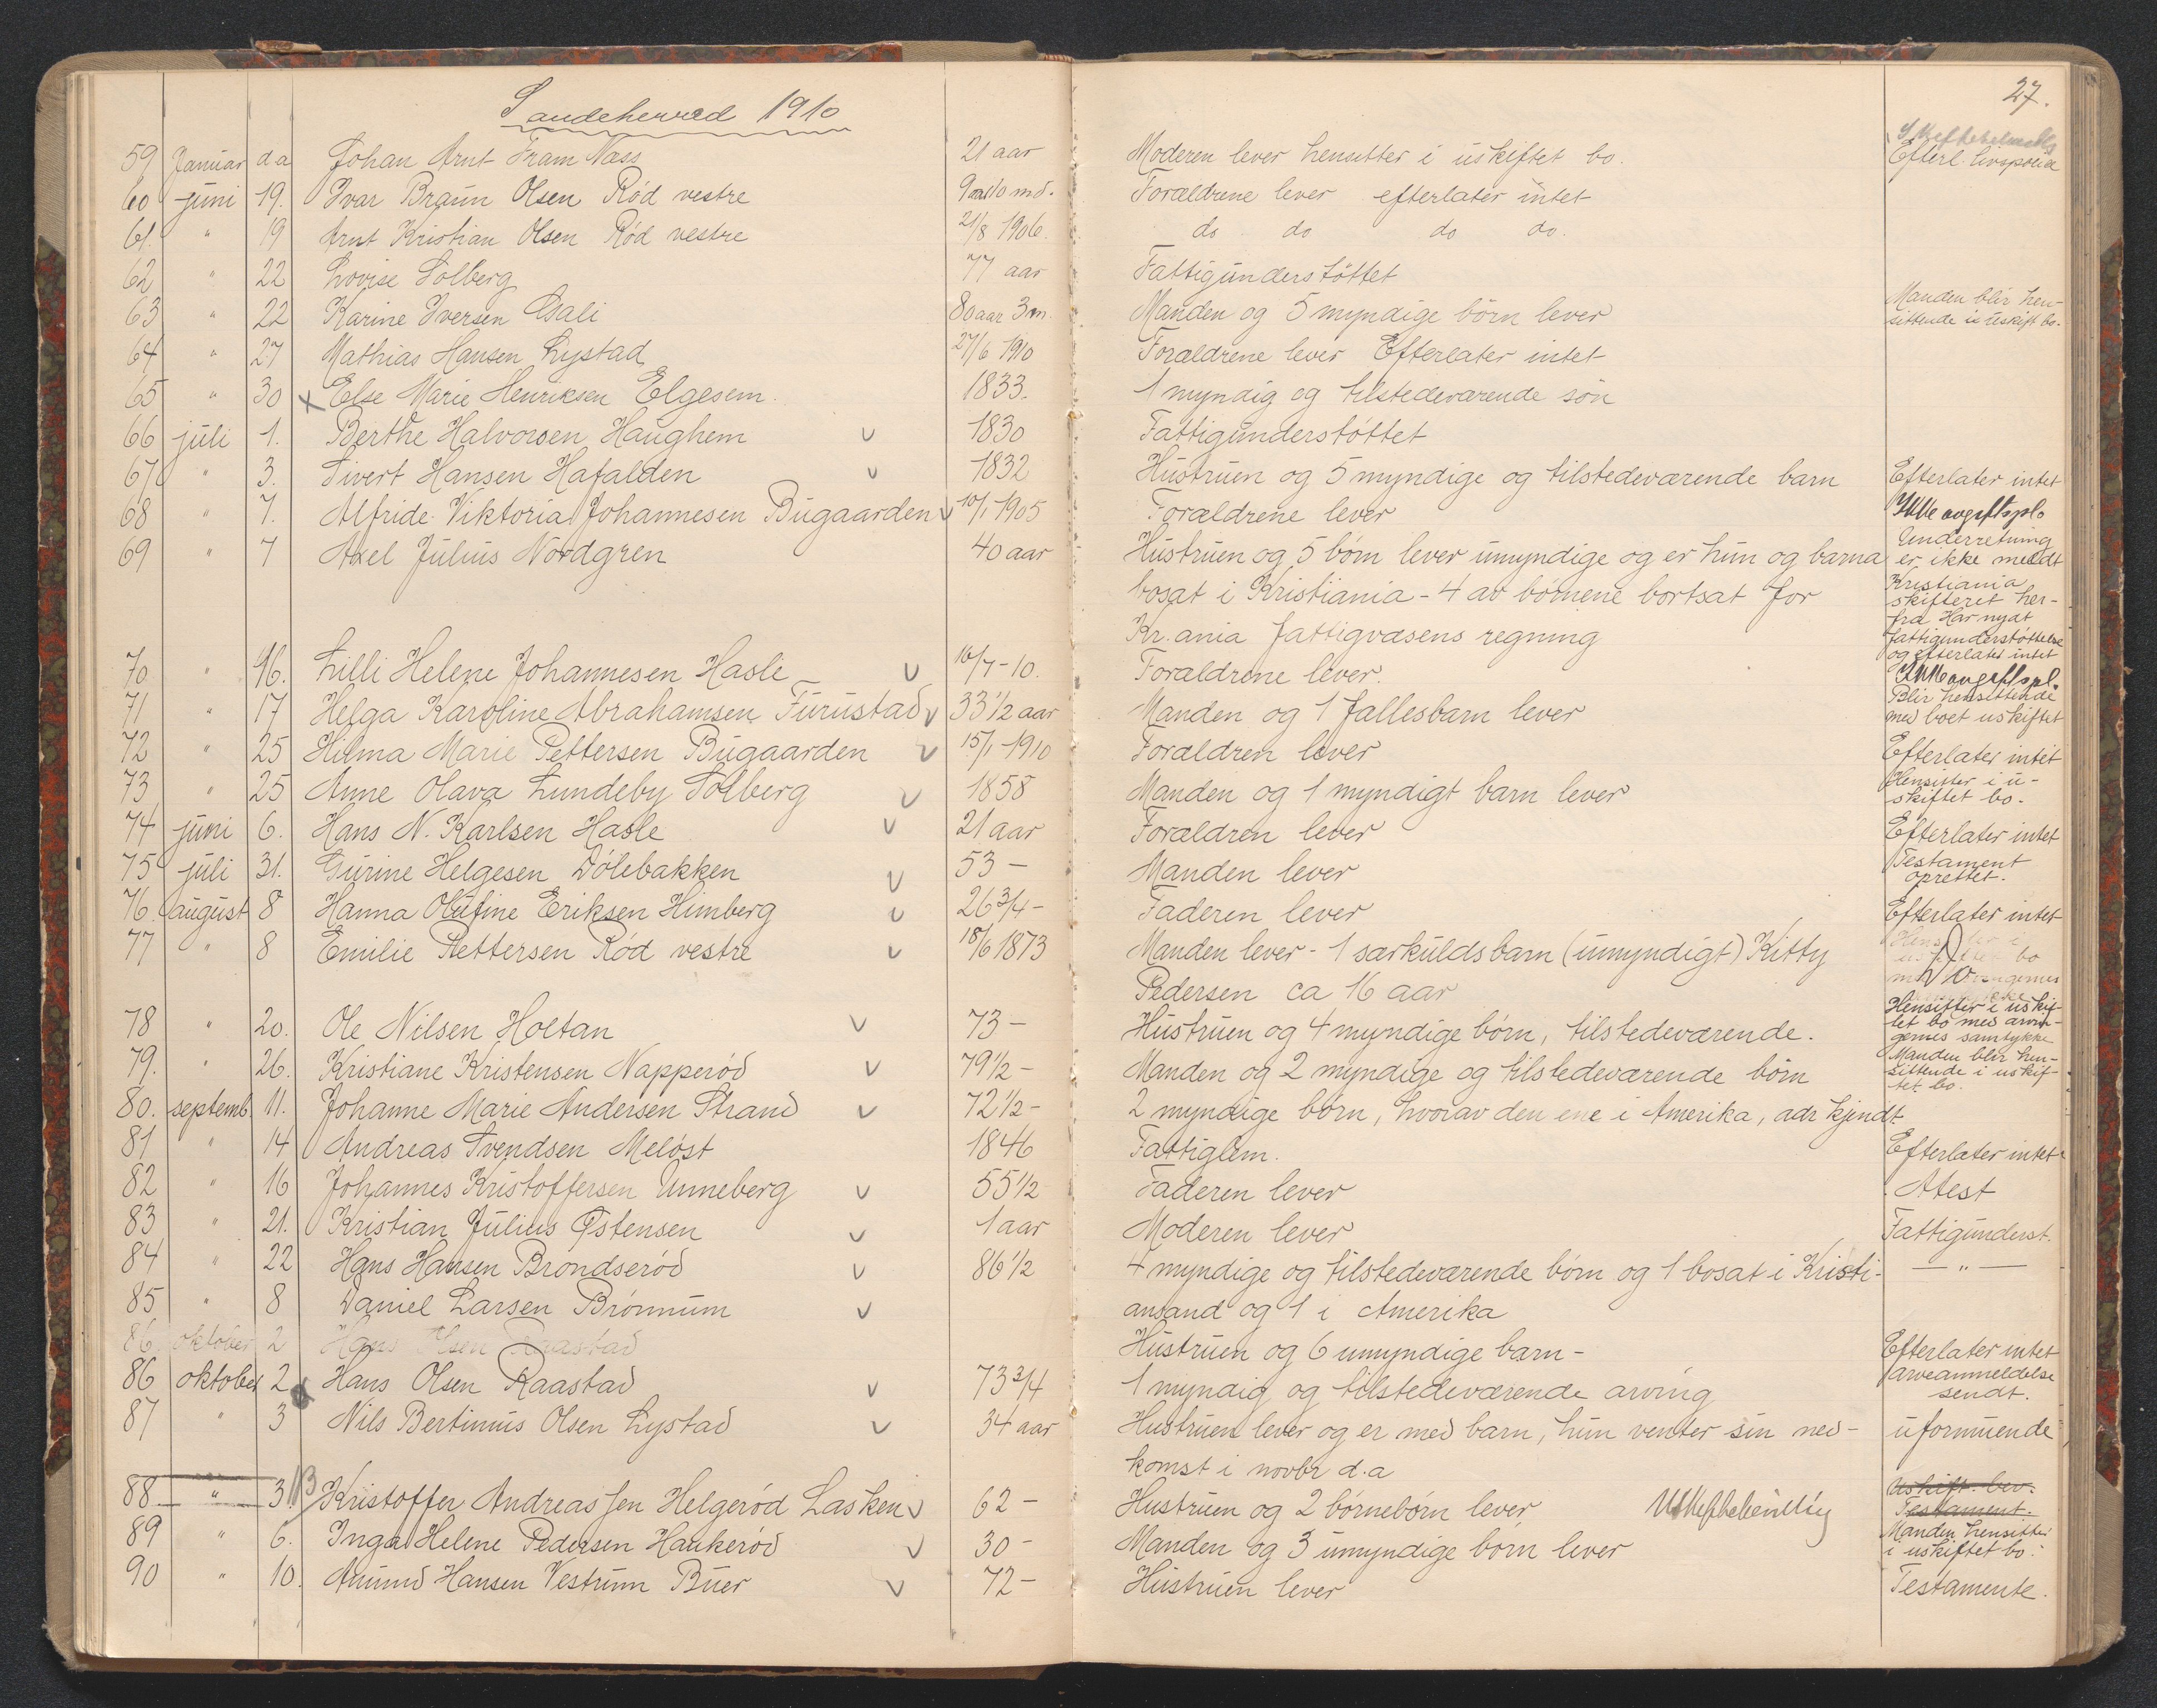 Sandeherred 1910
27.
59 Januar d a Johan Arnt Fram Næss 21 aar Moderen lever hensitter i uskiftet bo. Efterl. livspolice
60 juni 19. Ivar Braun Olsen Rød vestre 9 aar 10 md. Forældrene lever efterlater intet
61. " 19 Arnt Kristian Olsen Rød vestre 21/8 1906. do do do do.
62 " 22 Lovise Solberg 77 aar Fattigunderstöttet
63 " 22 Karine Iversen Gali 80 aar 3 m. Manden og 5 myndige börn lever Manden blir hen-
sittende i uskift bo.
64 " 27 Mathias Hansen Lystad 27/6 1910 Forældrene lever Efterlater intet
65 " 30 x Else Marie Henriksen Elgesem. 1833. 1 myndig og tilstedeværende sön
66 juli 1. Berthe Halvorsen Haughem v 1830 Fattigunderstöttet
67 " 3. Sivert Hansen Hafalden v 1832 Hustruen og 5 myndige og tilstedeværende barn Efterlater intet
68 " 7. Alfride Viktoria Johannesen Bugaarden v 10/1 1905 Forældrene lever Ikke avgiftspl.
69 " 7 Axel Julius Nordgren 40 aar Hustruen og 5 börn lever umyndige og er hun og barna Underretning
er ikke meddt
bosat i Kristiania - 4 av börnene bortsat for Kristiania
skifteret her-
Kr.ania fattigvæsens regning fra Har nydt
fattigunderstöttelse
og efterlater intet
70 " 16. Lilli Helene Johannesen Hasle v 16/7-10. Forældrene lever. Ikke avgiftspl.
71 " 17 Helga Karoline Abrahamsen Furustad v 33 1/2 aar Manden og 1 fællesbarn lever Blir hensittende
med boet uskiftet
72 " 25 Hilma Marie Pettersen Bugaarden v 15/1 1910 Forældren lever Efterlater intet
73 " 25 Anne Olava Lundeby Solberg v 1858 Manden og 1 myndigt barn lever Hensitter i u-
skiftet bo.
74 juni 6. Hans N. Karlsen Hasle v 21 aar Forældren lever Efterlater intet
75 juli 31. Gurine Helgesen Dölebakken v 53 - Manden lever Testament
oprettet.
76. august 8 Hanna Olufine Eriksen Himberg v 26 3/4 - Faderen lever Efterlater intet
77 " 8 Emilie Pettersen Rød vestre v 18/6 1873 Manden lever - 1 særkuldsbarn (umyndigt) Kitty
Pedersen ca 16 aar
78 " 20. Ole Nilsen Holtan v 73 - Hustruen og 4 myndige börn, tilstedeværende. Hensitter i uskif-
tet bo med arvin-
gernes samtykke
79. " 26. Kristiane Kristensen Napperød v 79 1/2 - Manden og 2 myndige og tilstedeværende börn Manden blir hen-
sittende i uskif-
tet bo.
80. septemb 11. Johanne Marie Andersen Strand v 72 1/2 - 2 myndige börn, hvorav den ene i Amerika, adr kjendt
81 " 14 Andreas Svendsen Meløst 1846 Fattiglem. Efterlater intet
82 " 16 Johannes Kristoffersen Unneberg v 55 1/2 Faderen lever Atest
83 " 21. Kristian Julius Østensen v 1 aar Moderen lever Fattigunderst.
84 " 22 Hans Hansen Brondserød v 86 1/2 4 myndige og tilstedeværende börn og 1 bosat i Kristi- — " —
85 " 8 Daniel Larsen Brönnum v ansand og 1 i Amerika
86. oktober 2 Hans Olsen Raastad Hustruen og 6 umyndige barn - Efterlater intet
86 oktober 2 Hans Olsen Raastad v 73 3/4 1 myndig og tilstedeværende arving arveanmeldelse
sendt.
87 " 3 Nils Bertinius Olsen Lystad v 34 aar Hustruen lever og er med barn, hun venter sin ned- uformuende
komst i novbr d.a
88 " 3. 13 Kristoffer Andreassen Helgerød Lasken v 62 - Hustruen og 2 börnebörn lever Uskift. bev.
Testament.
89 " 6. Inga Helene Pedersen Haukerød v 30 - Manden og 3 umyndige börn lever Manden hensitter
i uskiftet bo.
90 " 10. Amund Hansen Vestrum Buer v 72 - Hustruen lever Testamente.